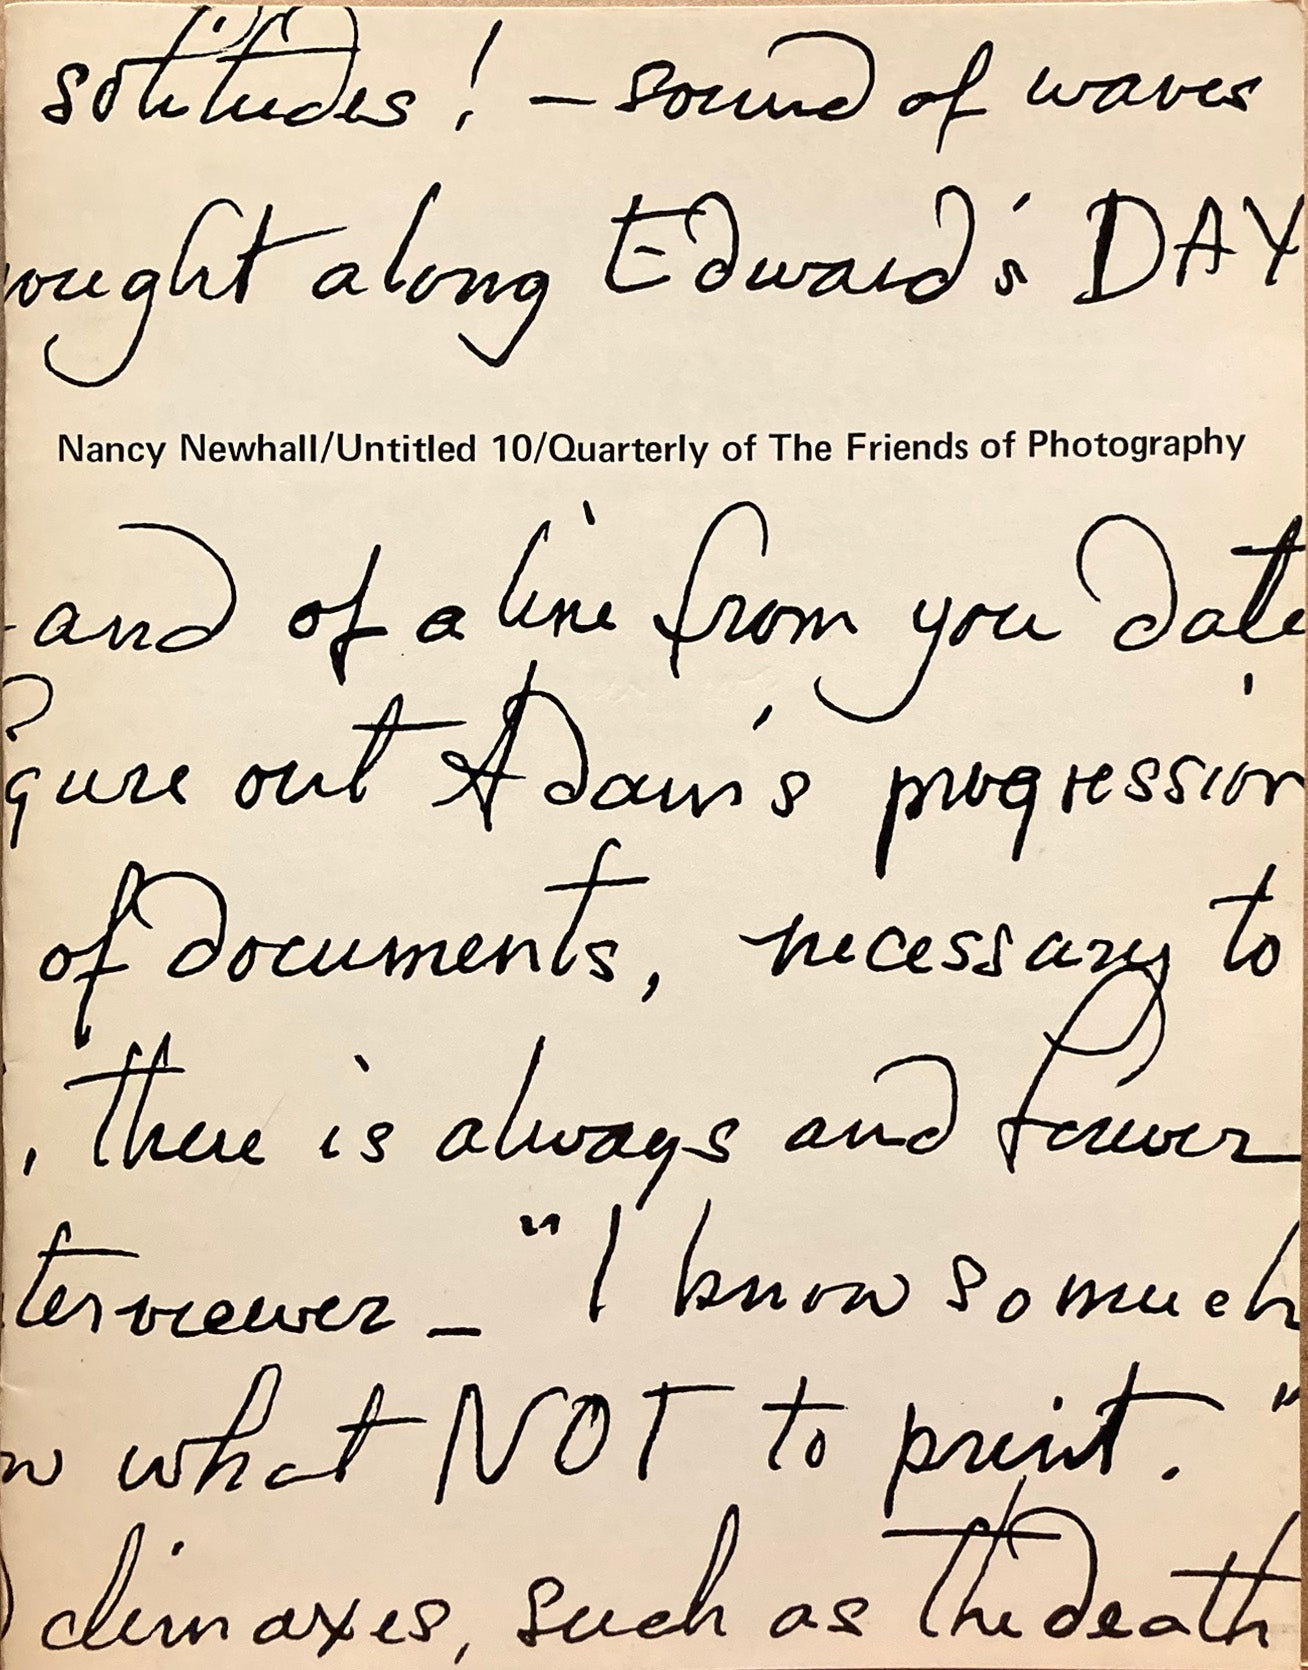 solitudes! — sound of waves
ought along Edward's DAY
Nancy Newhall/Untitled 10/Quarterly of The Friends of Photography
and of a line from you date
gure out Adam's progression
of documents, necessary to
, there is always and forever
terviewer — "I know so much
w what NOT to print."
climaxes, such as the death